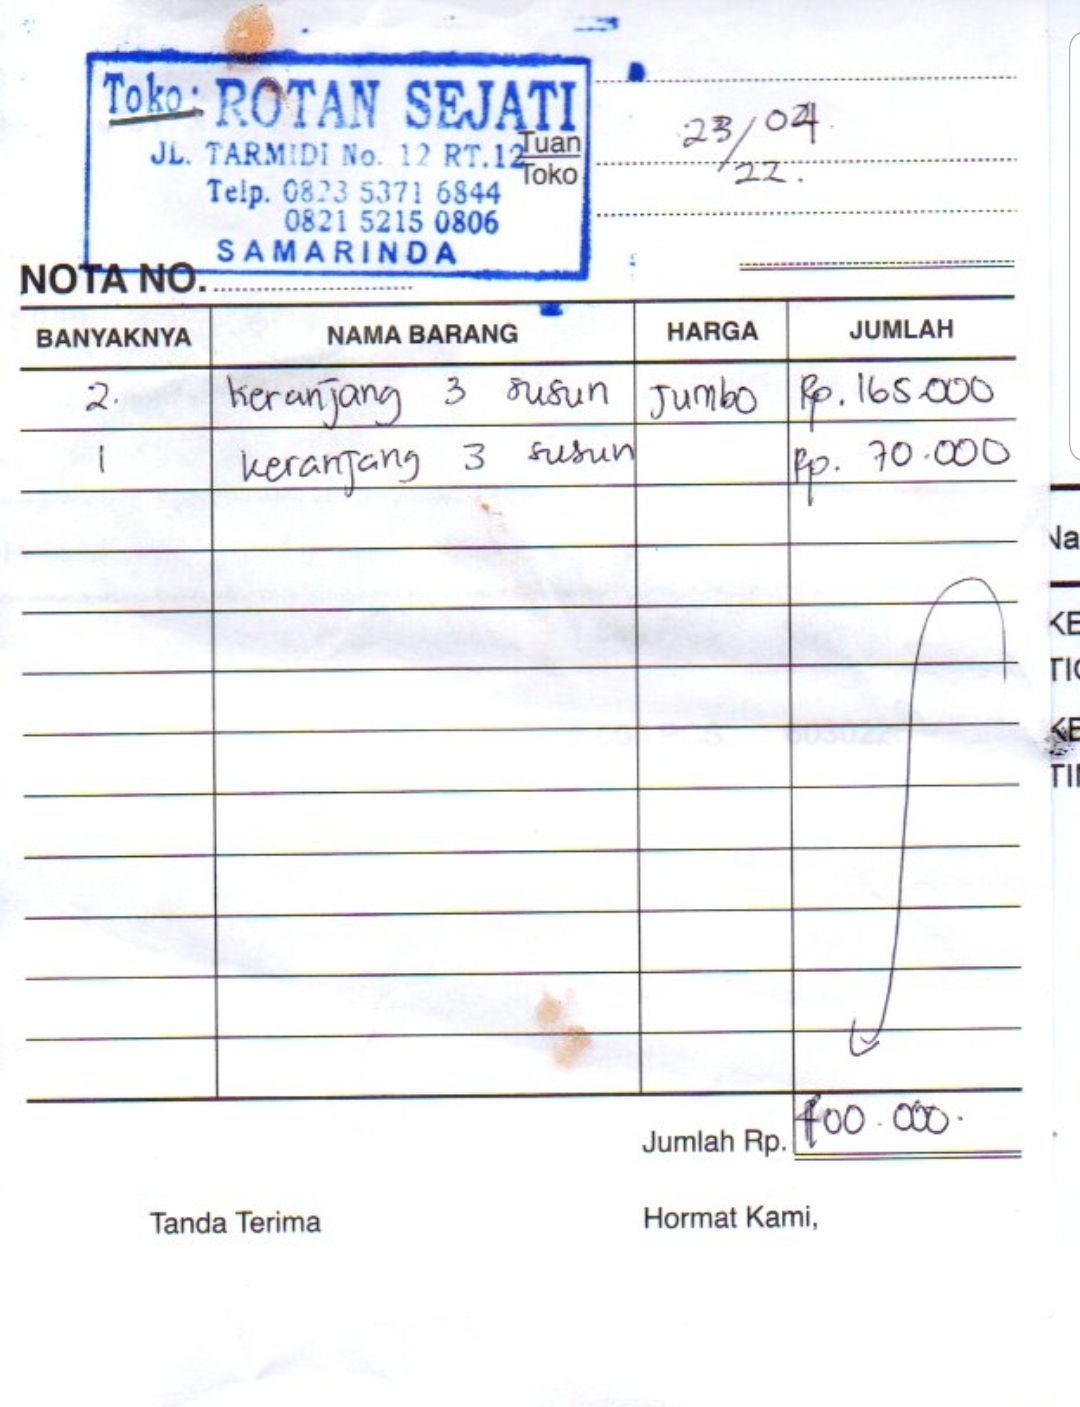 Toko: ROTAN SEJATI
JL. TARMIDI No. 12 RT.12
Telp. 0823 5371 6844
0821 5215 0806
SAMARINDA
Tuan
Toko
23/04
22.
NOTA NO.
BANYAKNYA NAMA BARANG HARGA JUMLAH
2. keranjang 3 susun Jumbo Rp. 165.000
1 keranjang 3 susun Rp. 70.000
Jumlah Rp. 400.000.
Tanda Terima Hormat Kami,
Na
KE
TIC
KE